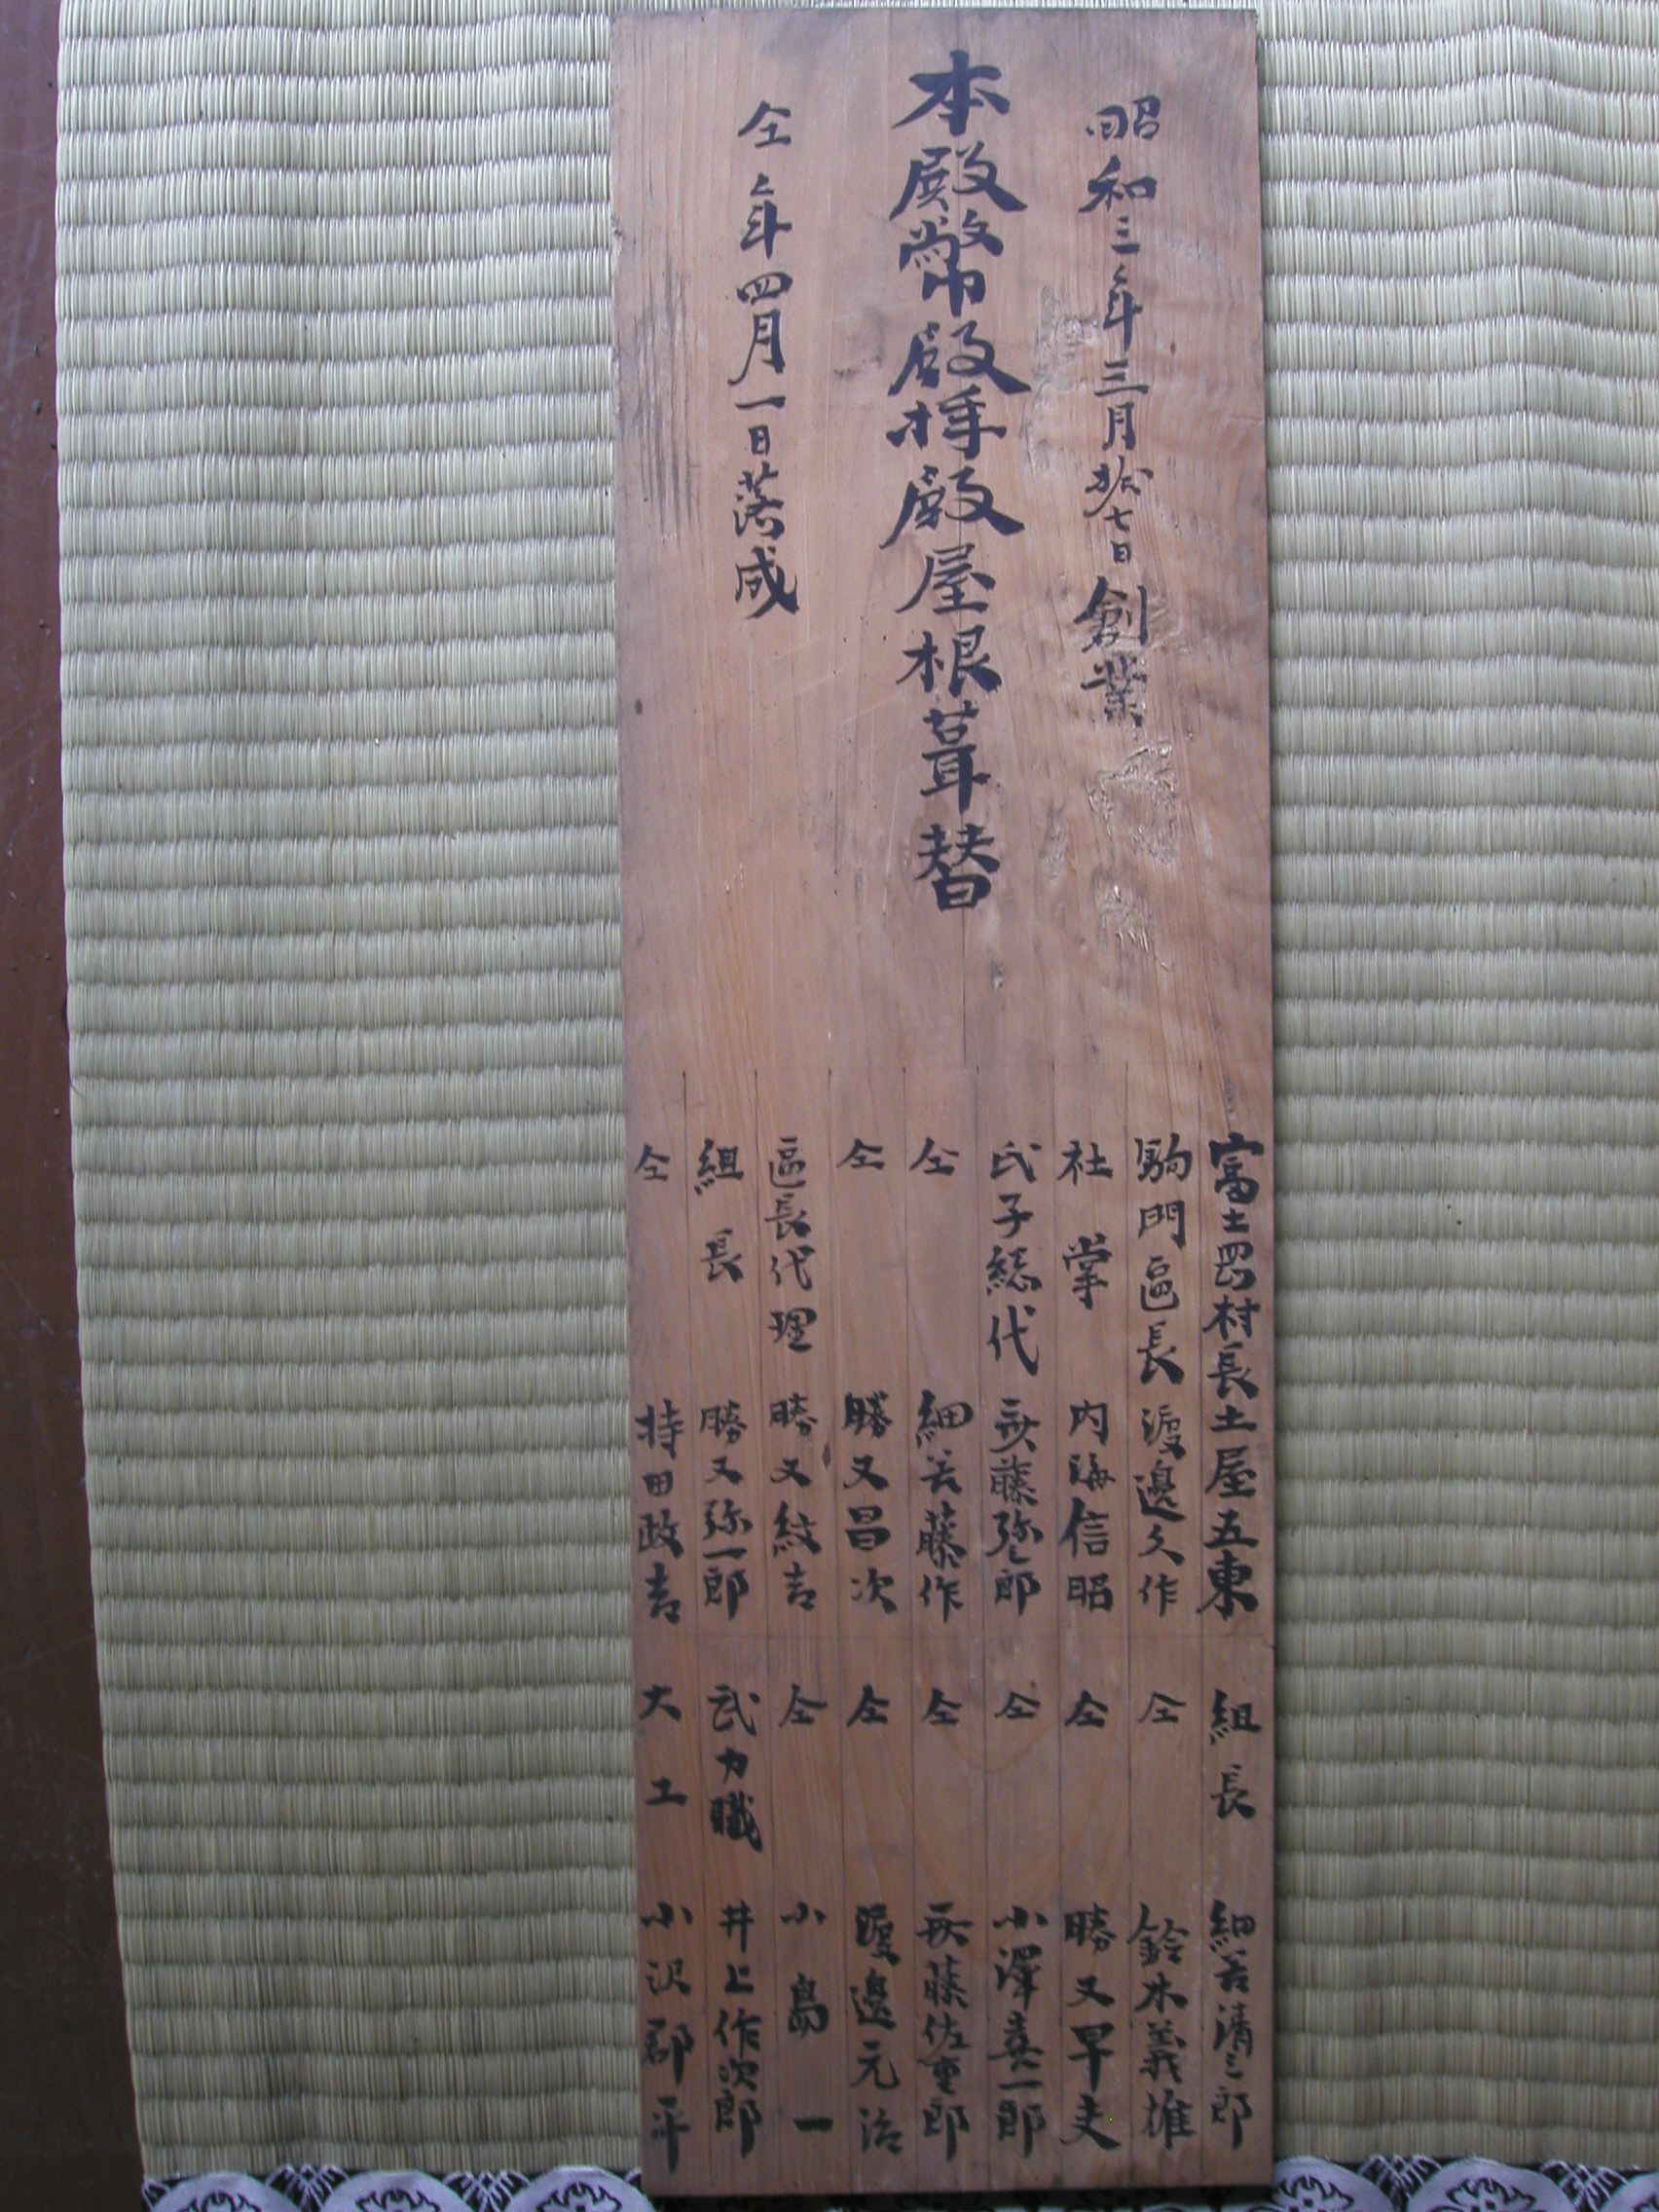 昭和三年三月拾七日創業
本殿幣殿拝殿屋根葺替
仝年四月一日落成
富士岡村長土屋五東
駒門區長渡邊久作
社掌 内海信昭
氏子総代
仝 細谷藤作
仝 勝又昌次
區長代理 勝又紋吉
組長 勝又弥一郎
仝 持田政吉
組長
仝 鈴木義雄
仝 勝又早夫
仝 小澤喜一郎
仝
仝 渡邊元治
仝 小島一
武力職 井上作次郎
大工 小沢郡平